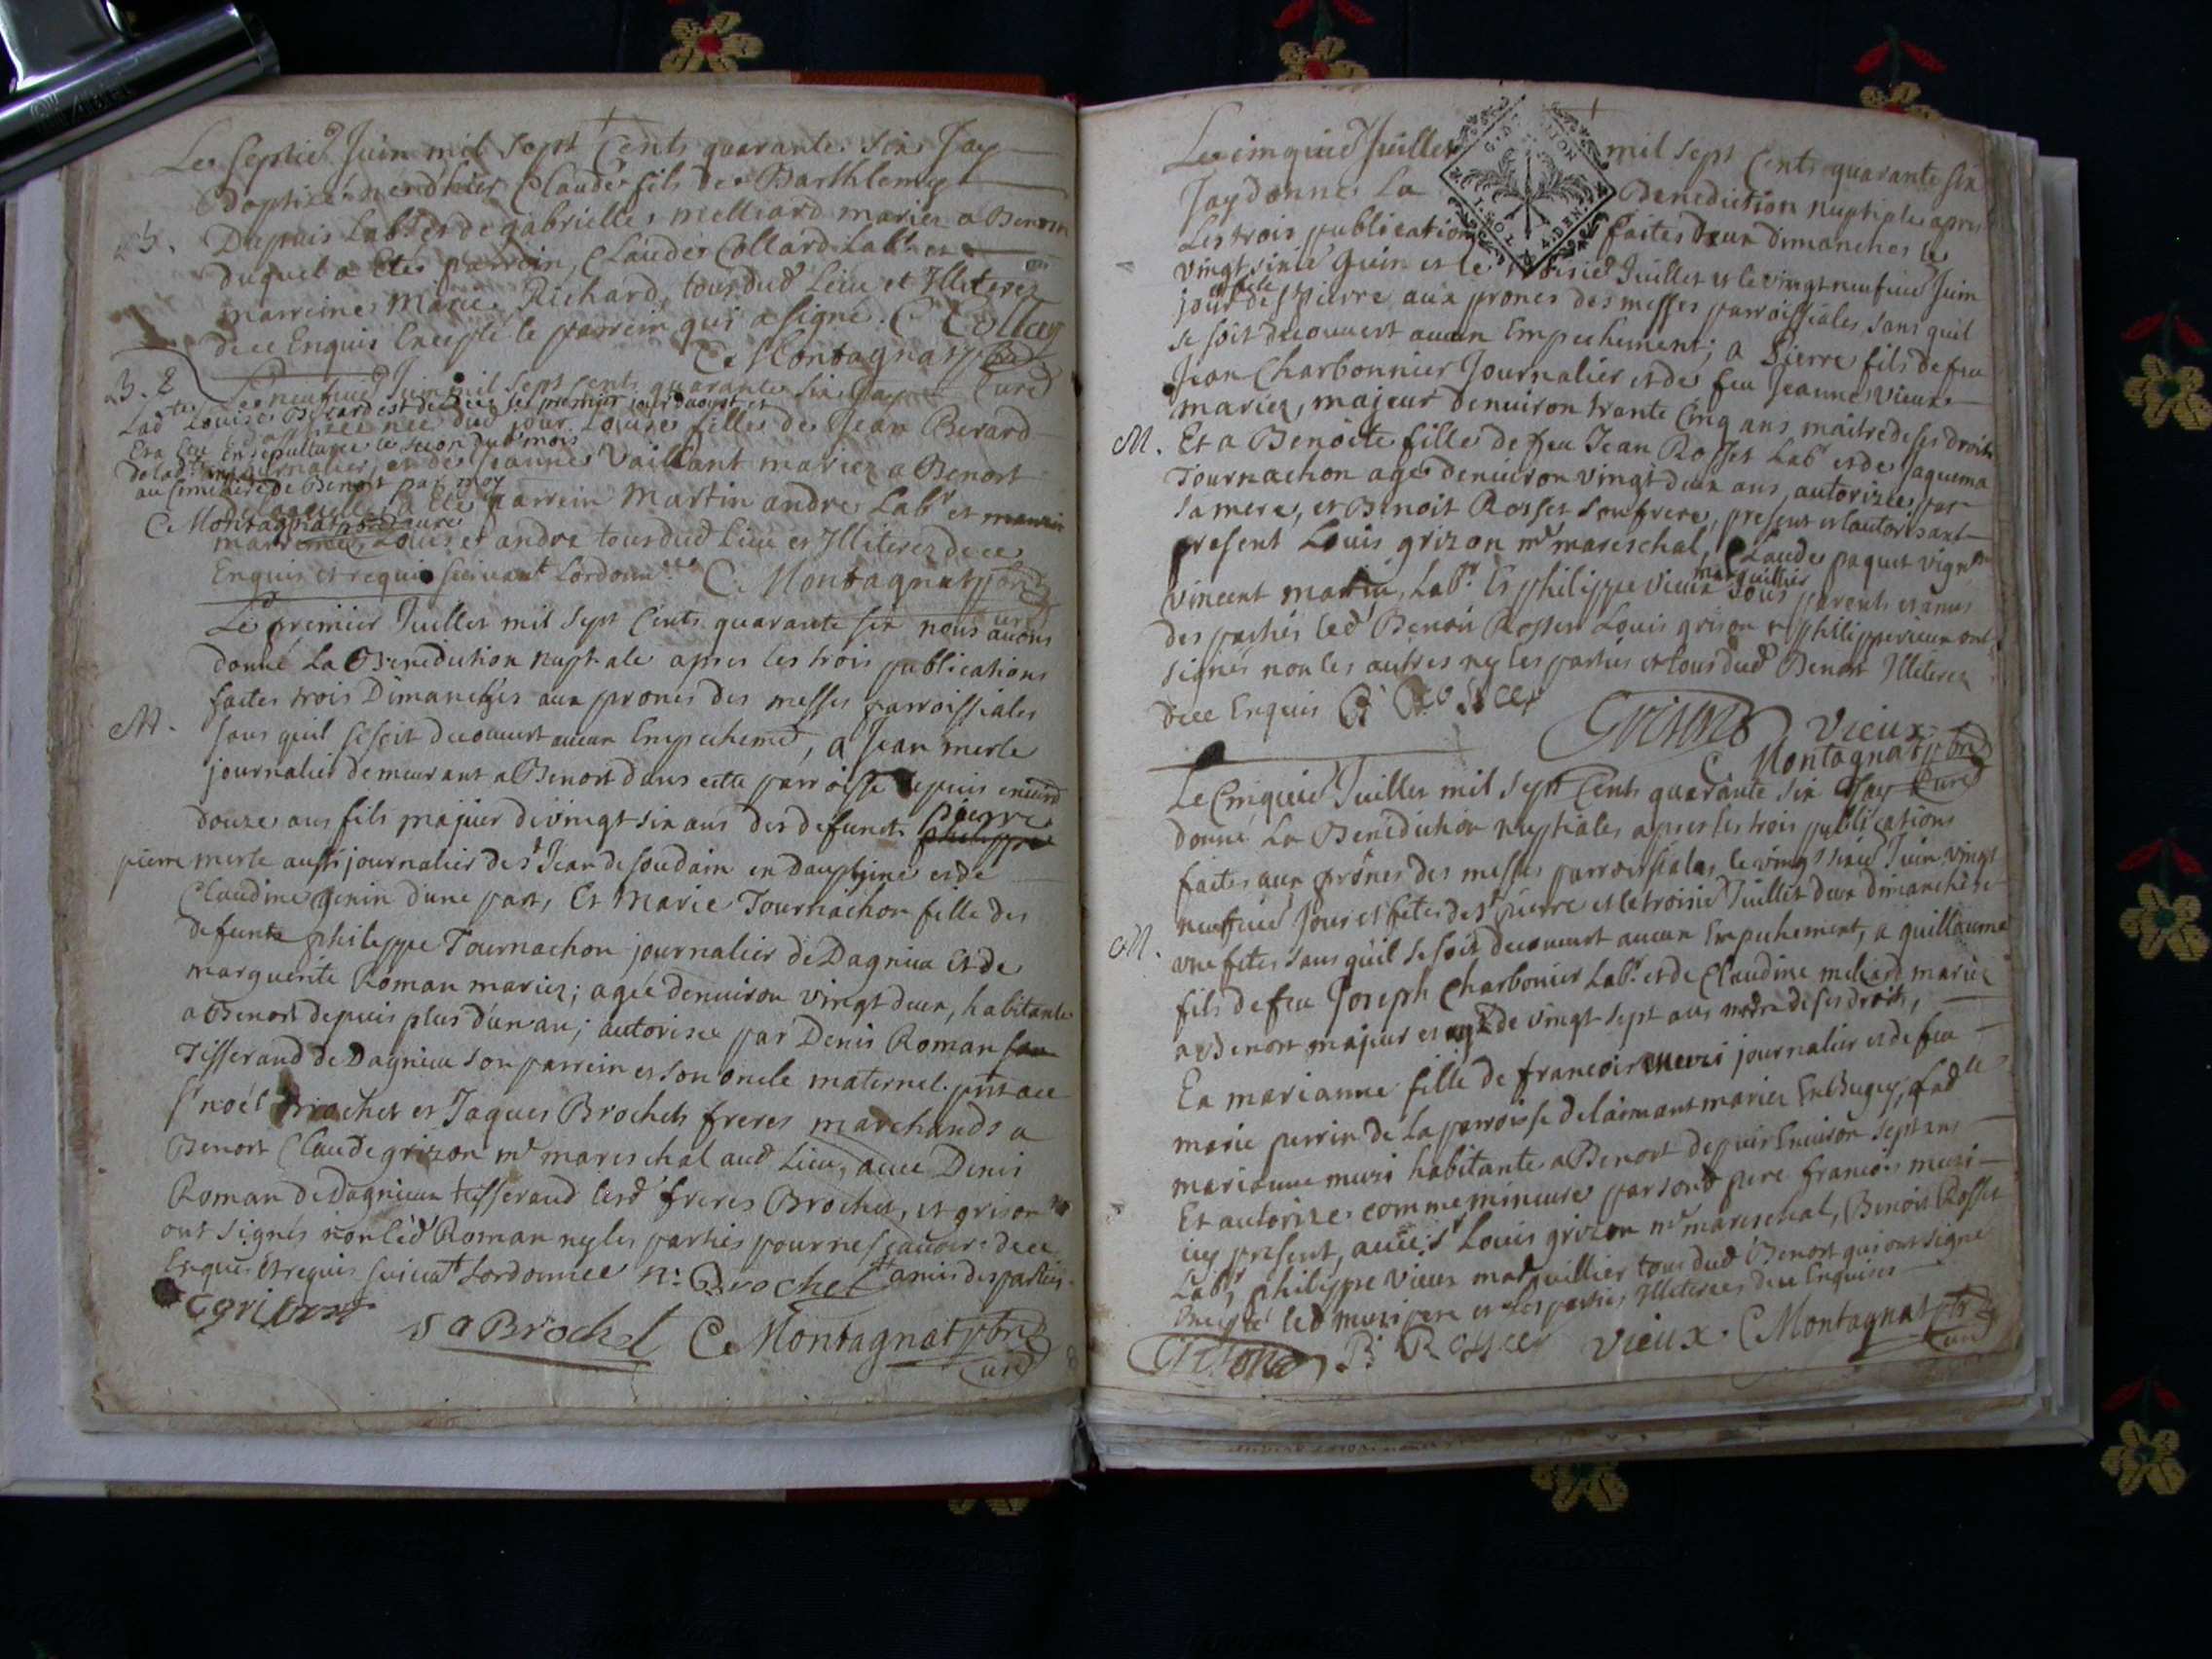 Le septie Juin mil sept Cents quarante six Jay
baptizé né d'hier Claude fils de Barthlemy
B.
Dupuis Labr et de gabrielle melliard mariez a Benost
duquel a eté parrein, Claude Collard Labr et
marreine Marie Richard, tous dud Lieu et Illiterez
de ce Enquis Excepté le parrein qui a signé. C Collay
C. Montagnat ptre
Curé
B. E
Le neufuie Juin mil sept cents quarante six Jay
Lad Louise Berard est decedée le premier jour daoust et
baptizée née dud jour Louise fille de Jean Berard
Et a eté Ensepulturée le second dud mois
journalier, et de Jeanne Vaillant mariez a Benost
au Cimetiere de Benost par moy
de laquelle a été parrein Martin andre Labr et
C. Montagnat ptre curé
marreine, Louise andre tous dud Lieu et Illiterez de ce
Enquis et requis suivant Lordonnce C. Montagnat ptre
curé
Le premier Juillet mil sept Cents quarante six nous avons
donné La Benediction nuptiale apres les trois publications
faites trois Dimanches aux prones des messes parroissiales
M.
sans quil se soit decouvert aucun Empecheme, a Jean merle
journalier demeurant a Benost dans cette parroisse depuis environ
douze ans fils majeur de vingt six ans des defuncts pierre
philippe
pierre merle aussi journalier de st Jean de soudain en dauphiné et de
Claudine genin d'une part, Et Marie Tournachon fille des
defunts philippe Tournachon journalier de Dagnieu et de
marguerite Roman mariez; agée denuiron vingt deux, habitante
a Benost depuis plus d'un an; autorisée par Denis Roman
Tisserand de Dagnieu son parrein et son oncle maternel. pnt a ce
sr noél Brochet et Jaques Brochet freres marchands a
Benost Claude grizon me mareschal aud Lieu, avec Denis
Roman de Dagnieu tisserand lesd freres Brochet, et grison
ont signés non led Roman ny les parties pour ne scauoir de ce
Enquis et requis suiuat Lordonnce n: Brochet amis des parties
C grison
Ja Brochet C. Montagnat ptre
Curé
Le cinquie Juillet mil sept Cents quarante six
Jay donné La Benediction nuptiale apres
Les trois publications faites deux dimanches le
vingt sixie Juin et le troisie Juillet et le vingt neufuie Juin
et fete
jour de st Pierre aux prones des messes parroissiales, sans quil
se soit decouvert aucun Empechement; a Pierre fils de feu
Jean Charbonnier Journalier et de feu Jeanne vieux
mariez, majeur denuiron trante Cinq ans maitre de ses droits
M.
Et a Benoite fille de feu Jean Rosset Labr et de Jaquema
Tournachon agée denuiron vingt deux ans, autorizée par
sa mere, et Benoit Rosset son frere, present et lautorisant
present Louis grizon me mareschal, Claude paquet vignn
vincent martin, Labr. Et philippe vieux marguillier tous parents et amis
des parties led Benoit Rosset Louis grison et philippe vieux ont
signés non les autres ny les parties et tous dud Benost Illiterez
de ce Enquis B Rosset
Grison vieux
C. Montagnat ptre
Le Cinquie Juillet mil sept Cents quarante six Jay Curé
donné La Benediction nuptiale apres les trois publications
faites aux prônes des messes parroissiales, le vingt sixie Juin vingt
neufuie jour et fete de st pierre et le troisie Juillet deux dimanches et
M.
une fete sans quil se soit decouvert aucun Empechement, a guillaume
fils de feu Joseph Charbonier Labr. et de Claudine meliard mariez
a Benost majeur et agé de vingt sept ans maitre de ses droits,
Ea marianne fille de francois muri journalier et de feu
marie perrin de La parroisse de laimant mariez En Bugey, Lad
marianne muri habitante a Benost depuis Enuiron sept ans
Et autorizée comme mineure par son pere francois muri
icy present, avec sr Louis grizon me mareschal, Benoit Rosset
Labr, philippe vieux marguillier tous dud Benost qui ont signé
Excepté led muri pere et les parties Illiterées de ce Enquises
Grison B Rosset vieux C. Montagnat ptre
Curé